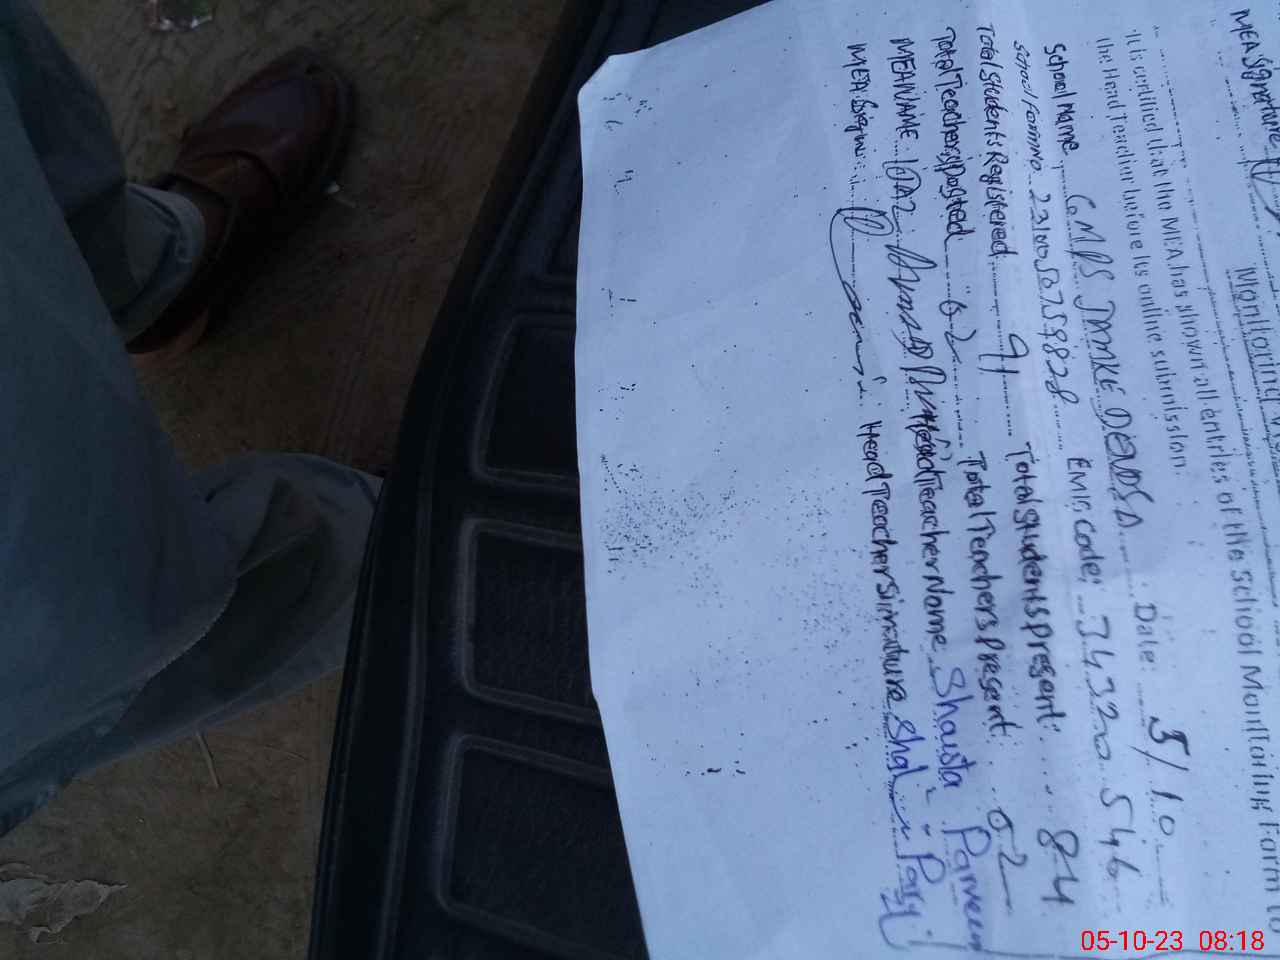 MEA Signature
Monitoring
It is certified that the MEA has shown all entries of the School Monitoring Form to
the Head Teacher before its online submission.
School Name GMPS DEAPSA Date 5/10
School Form no. 23100505759828 Emis Code: 34320546
Total Students Registered 91 Total Students Present: 84
Total Teachers Posted 02 Total Teachers Present: 02
MEA NAME Head Teacher Name Shaista Parveen
MEA Sign: Head Teacher Sinnature
05-10-23 08:18